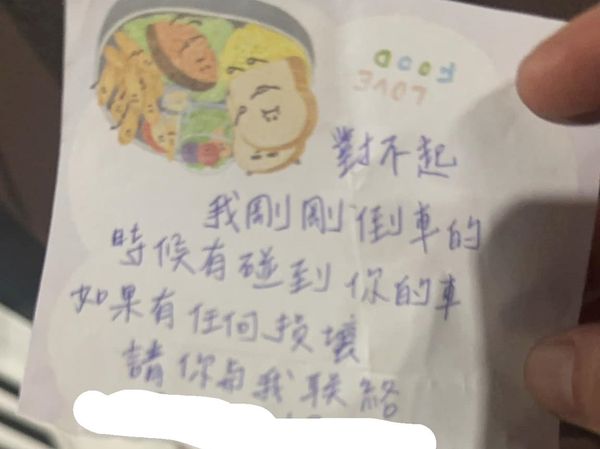 FOOD
LOVE
對不起
我剛剛倒車的
時候有碰到你的車
如果有任何損壞
請你与我联絡